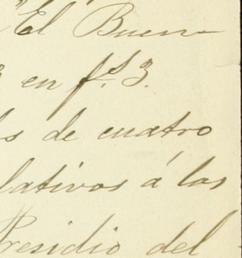 "El Buen
3 en f.s 3.
os de cuatro
lativos á las
Presidio del